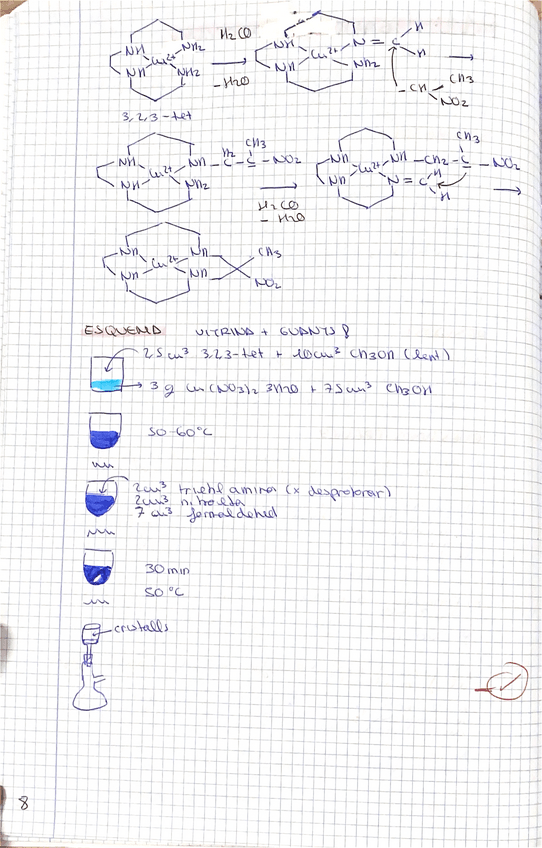 H₂CO
NH NH₂ NH N = C H
Cu²⁺ Cu²⁺ H
NH NH₂ NH NH₂
-H₂O
CH CH₃
NO₂
3,2,3-tet
CH₃
NH NH - C - C - NO₂
H₂
Cu²⁺
NH NH₂
H₂CO
- H₂O
CH₃
NH NH - CH₂ - C - NO₂
Cu²⁺
NH N = C H
H
NH NH CH₃
Cu²⁺
NH NH NO₂
ESQUEMA VITRINA + GUANTS
25 cm³ 3,2,3-tet + 10 cm³ CH₃OH (lent)
3 g Cu(NO₃)₂ 3H₂O + 75 cm³ CH₃OH
50-60°C
2cm³ trietilamina (x desprotonar)
2cm³ nitroetà
7 cm³ formaldehid
30 min
50°C
cristalls
8